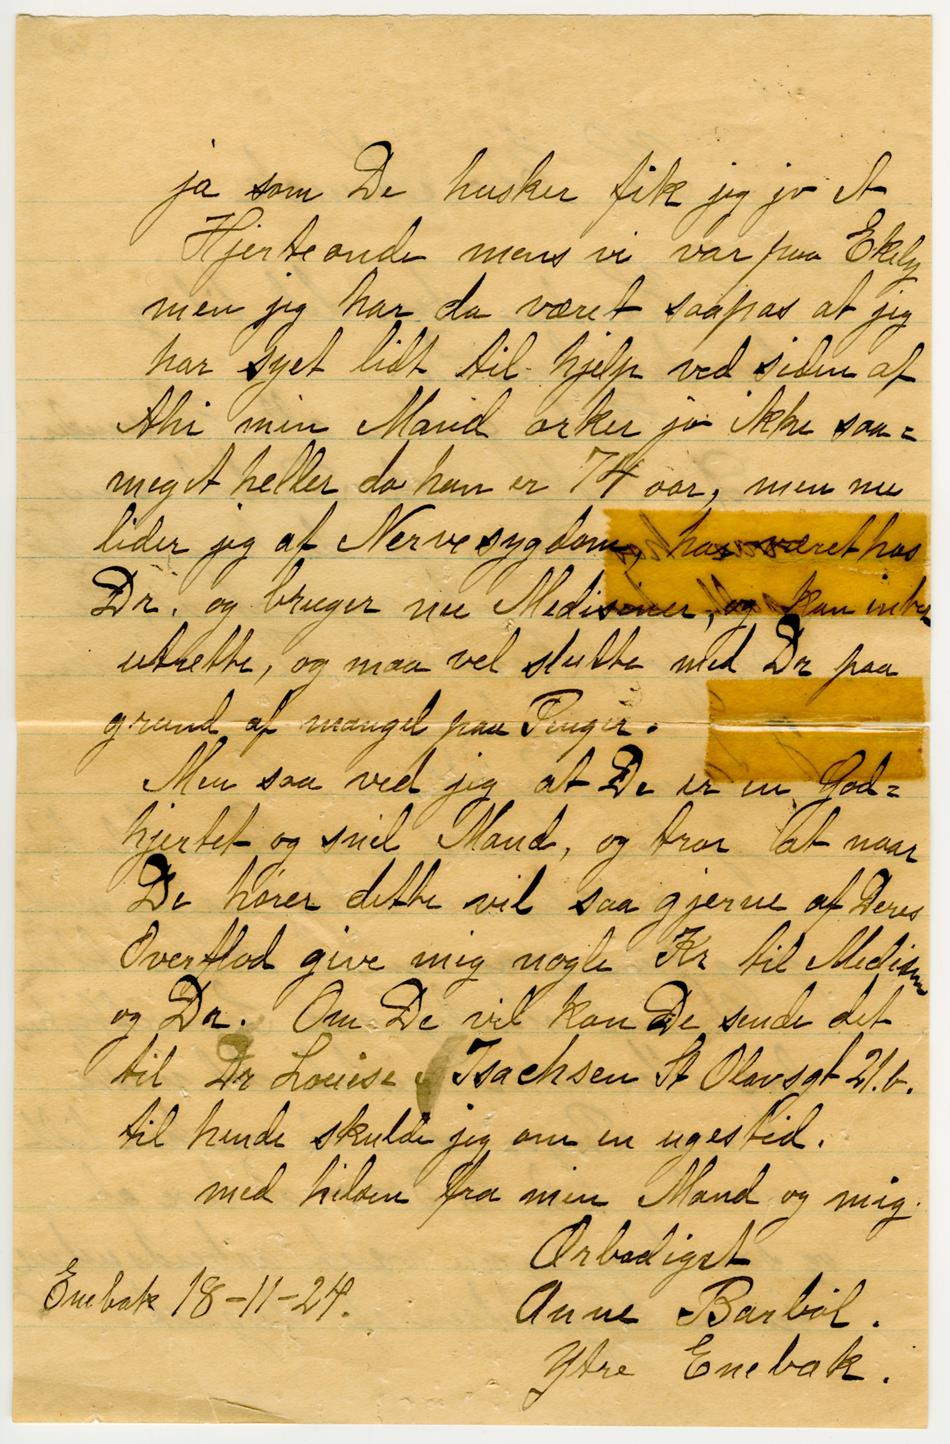 ja som De husker fik jeg jo et
Hjerteonde mens vi var paa Ekely
men jeg har da været saapas at jeg
har syet lidt til hjelp ved siden af
thi min Mand orker jo ikke saa=
meget heller da han er 74 aar, men nu
lider jeg af Nervesygdom, har været hos
Dr. og bruger nu Medisiner, og kan intet
utrette, og maa vel slutte med Dr paa
grund af mangel paa Penger.
Men saa ved jeg at De er en God=
hjertet og snil Mand, og tror at naar
De hører dette vil saa gjerne af Deres
Overflod give mig nogle Kr til Medisin
og Dr. Om De vil kan De sende det
til Dr Louise Isachsen St Olavsgt 21.b.
til hende skulde jeg om en ugestid.
med hilsen fra min Mand og mig.
Ærbødigst
Enebak 18-11-24.
Anne Barbøl.
Ytre Enebak.